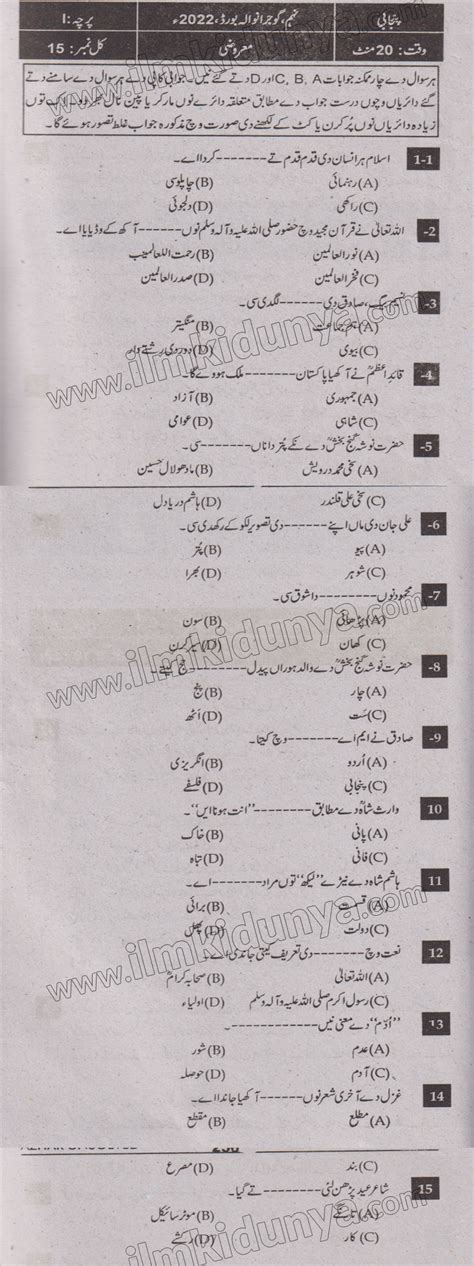 پنجابی نہم، گوجرانوالہ بورڈ، 2022ء پرچہ: I
وقت: 20 منٹ معروضی کل نمبر: 15
ہر سوال دے چار ممکنہ جوابات A، B، C اور D دتے گئے نیں۔ جوابی کاپی دے ہر سوال دے سامنے دتے
گئے دائریاں وچوں درست جواب دے مطابق متعلقہ دائرے نوں مارکر یا پین نال بھر دیو۔ اک توں
زیادہ دائریاں نوں پُر کرن یا کٹ کے لکھنے دی صورت وچ مذکورہ جواب غلط تصور ہوئے گا۔
1-1 اسلام ہر انسان دی قدم قدم تے ------- کردا اے۔
(A) رہنمائی (B) چاپلوسی
(C) راکھی (D) دلجوئی
2- اللہ تعالیٰ نے قرآن مجید وچ حضور صلی اللہ علیہ وآلہ وسلم نوں ------- آکھ کے وڈیایا اے۔
(A) نور العالمین (B) رحمت اللعالمین
(C) فخر العالمین (D) صدر العالمین
3- نسیم بیگ، صادق دی ------- لگدی سی۔
(A) ہم جماعت (B) منگیتر
(C) بیوی (D) دور دی رشتے دار
4- قائدِاعظمؒ نے آکھیا پاکستان ------- ملک ہووے گا۔
(A) جمہوری (B) آزاد
(C) شاہی (D) عوامی
5- حضرت نوشہ گنج بخشؒ دے نکے پتر دا ناں ------- سی۔
(A) سخی محمد درویش (B) مادھو لال حسین
(C) سخی علی قلندر (D) ہاشم دریا دل
6- علی جان دی ماں اپنے ------- دی تصویر لکو کے رکھدی سی۔
(A) پیو (B) پتر
(C) شوہر (D) بھرا
7- محمود نوں ------- دا شوق سی۔
(A) پڑھائی (B) سون
(C) کھان (D) سیر کرن
8- حضرت نوشہ گنج بخشؒ دے والد ہوراں پیدل ------- حج کیتے
(A) چار (B) پنج
(C) ست (D) اٹھ
9- صادق نے ایم اے ------- وچ کیتا۔
(A) اُردو (B) انگریزی
(C) پنجابی (D) فلسفے
10 وارث شاہؒ دے مطابق ------- ‘‘انت ہونا ایں’’۔
(A) پانی (B) خاک
(C) فانی (D) تباہ
11 ہاشم شاہ دے نیڑے ‘‘لیکھ’’ توں مراد ------- اے۔
(A) قسمت (B) برائی
(C) دولت (D) پھل
12 نعت وچ ------- دی تعریف کیتی جاندی اے۔
(A) اللہ تعالیٰ (B) صحابہ کرامؓ
(C) رسول اکرم صلی اللہ علیہ وآلہ وسلم (D) اولیاء
13 ‘‘اُدّم’’ دے معنی نیں -------۔
(A) عدم (B) شور
(C) آدم (D) حوصلہ
14 غزل دے آخری شعر نوں ------- آکھیا جاندا اے۔
(A) مطلع (B) مقطع
(C) بند (D) مصرع
15 شاعر عید پڑھن لئی ------- تے گیا۔
(A) تانگے (B) موٹر سائیکل
(C) کار (D) رکشے
www.ilmkidunya.com
www.ilmkidunya.com
www.ilmkidunya.com
www.ilmkidunya.com
ilmkidunya.com